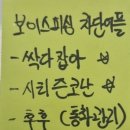 보이스피싱 차단어플
- 싹다잡아
- 시티즌코난
- 후후 (통화관리)